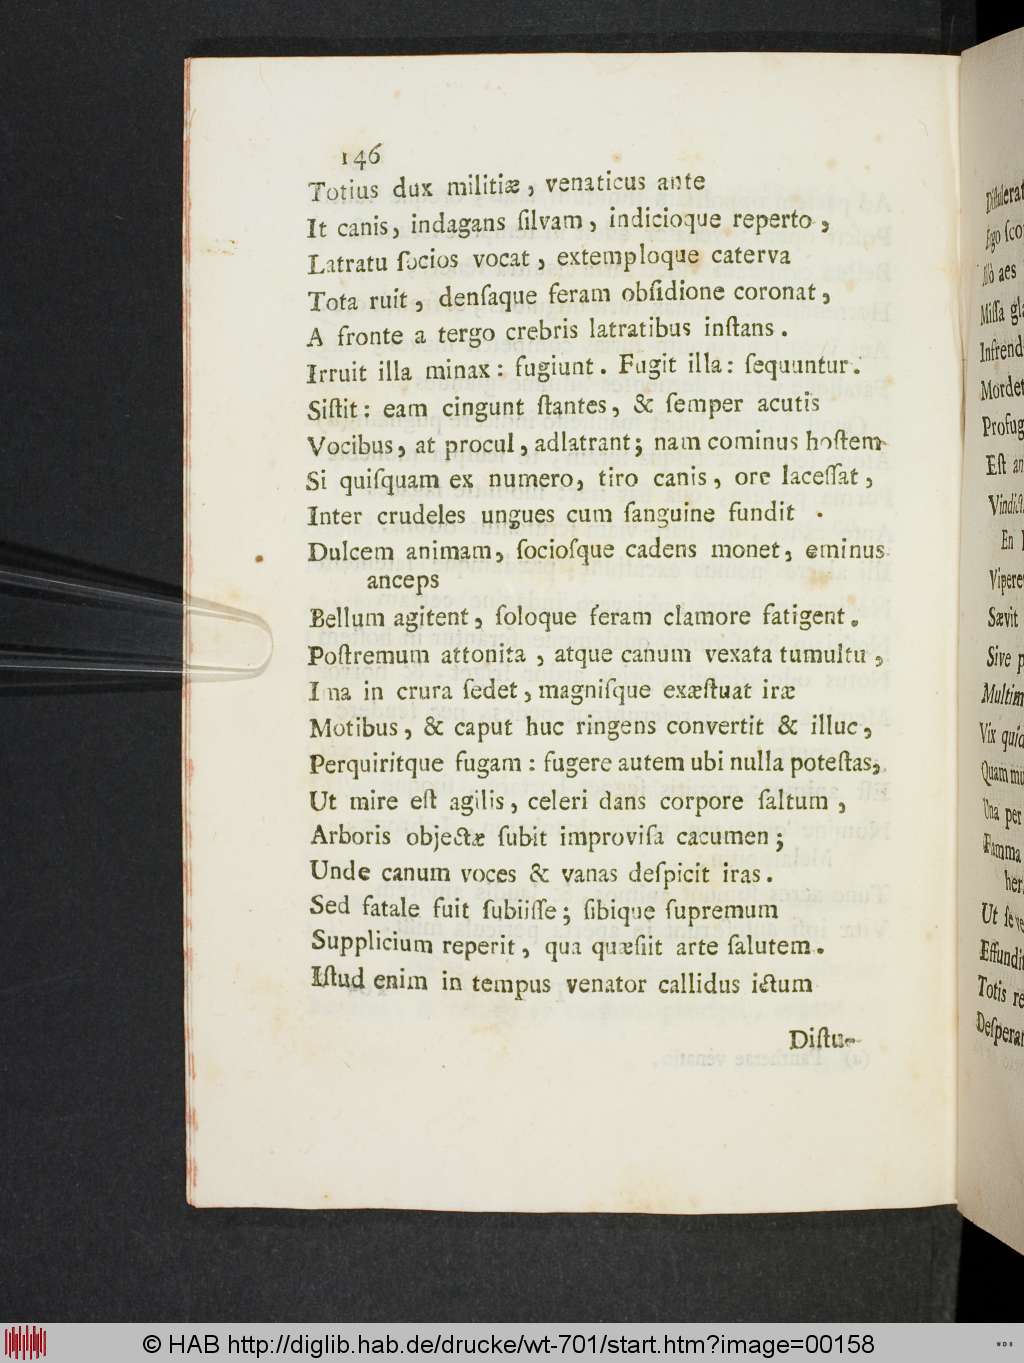 146
Totius dux militiæ, venaticus ante
It canis, indagans ſilvam, indicioque reperto,
Latratu ſocios vocat, extemploque caterva
Tota ruit, denſaque feram obſidione coronat,
A fronte a tergo crebris latratibus inſtans.
Irruit illa minax: fugiunt. Fugit illa: ſequuntur.
Siſtit: eam cingunt ſtantes, & ſemper acutis
Vocibus, at procul, adlatrant; nam cominus hoſtem
Si quiſquam ex numero, tiro canis, ore laceſſat,
Inter crudeles ungues cum ſanguine fundit .
Dulcem animam, ſocioſque cadens monet, eminus
anceps
Bellum agitent, ſoloque feram clamore fatigent.
Poſtremum attonita, atque canum vexata tumultu,
Ima in crura ſedet, magniſque exæſtuat iræ
Motibus, & caput huc ringens convertit & illuc,
Perquiritque fugam: fugere autem ubi nulla poteſtas,
Ut mire eſt agilis, celeri dans corpore ſaltum,
Arboris objectæ ſubit improviſa cacumen;
Unde canum voces & vanas deſpicit iras.
Sed fatale fuit ſubiiſſe; ſibique ſupremum
Supplicium reperit, qua quæſiit arte ſalutem.
Iſtud enim in tempus venator callidus ictum
Diſtu-
Ego
aes
Miſſa
Infrend
Mordet
Profug
Eſt an
En
Vipere
Sævit
Sive p
Multim
Vix quid
Quam mu
Una per
Flamma
her
Ut ſe ve
Effundit
Totis re
Deſperat
© HAB http://diglib.hab.de/drucke/wt-701/start.htm?image=00158